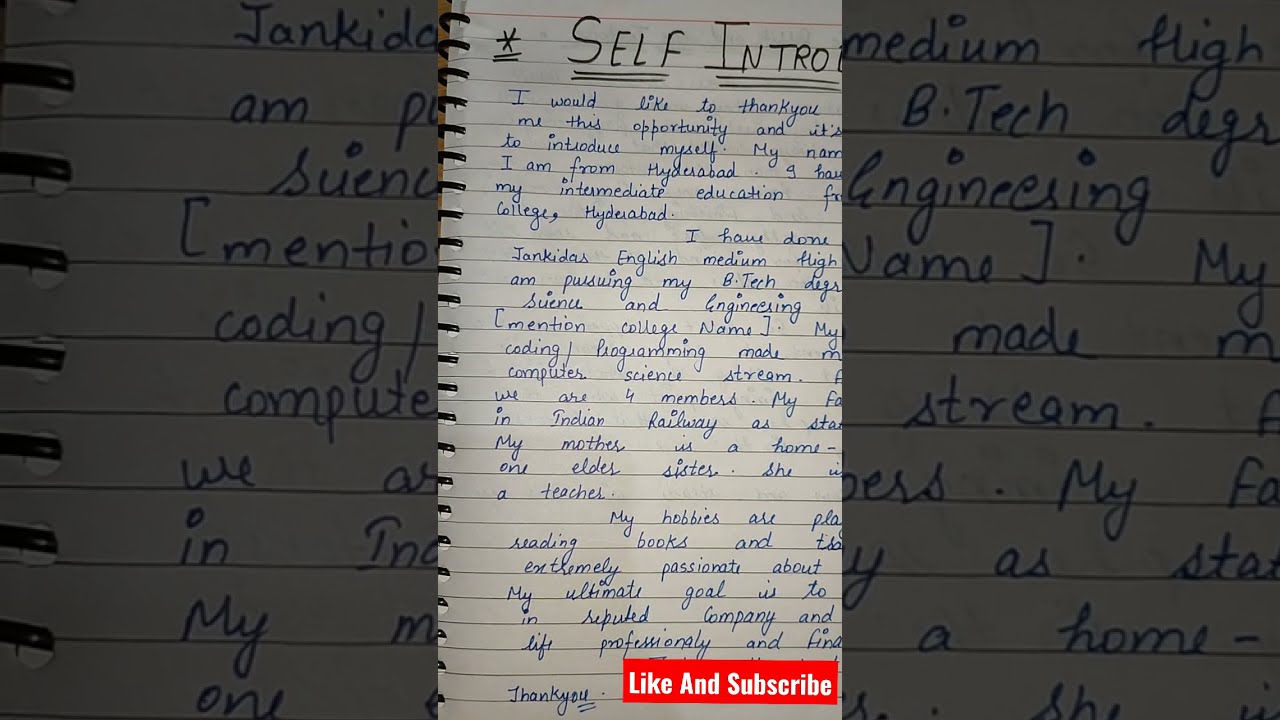 * SELF INTRO
I would like to thankyou
me this opportunity and it's
to introduce myself. My nam
I am from Hyderabad. I hav
my intermediate education fr
College, Hyderabad.
I have done
Jankidas English medium High
am pursuing my B.Tech degr
Suience and Engineering
[mention college Name]. My
coding/Programming made m
computer science stream. F
we are 4 members. My Fa
in Indian Railway as stat
My mother is a home-
one elder sister. she is
a teacher.
My hobbies are pla
reading books and tra
extremely passionate about
My ultimate goal is to
in reputed Company and
life professionaly and fina
Thankyou.
Like And Subscribe